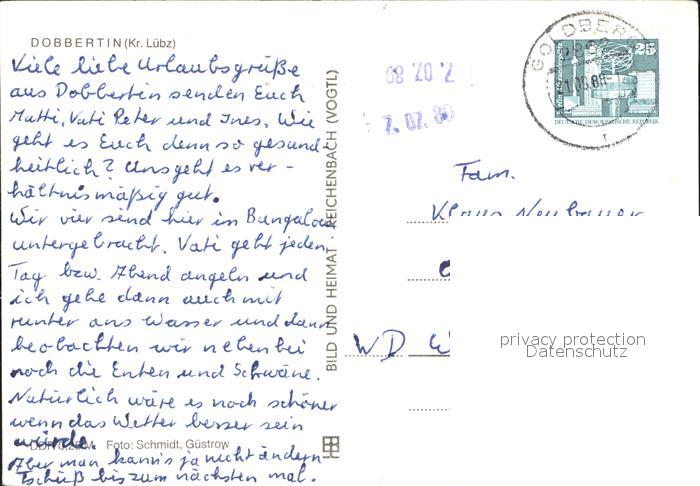 DOBBERTIN (Kr. Lübz)
Viele liebe Urlaubsgrüße
aus Dobbertin senden Euch
Mutti, Vati Peter und Ines. Wie
geht es Euch denn so gesund-
heitlich? Uns geht es ver-
hältnismäßig gut.
Wir vier sind hier im Bungalow
untergebracht. Vati geht jeden
Tag bzw. Abend angeln und
ich gehe dann auch mit
runter ans Wasser und dann
beobachten wir nebenbei
noch die Enten und Schwäne.
Natürlich wäre es noch schöner
wenn das Wetter besser sein
würde.
Foto: Schmidt, Güstrow
Aber man kann's ja nicht ändern
Tschüß bis zum nächsten mal.
BILD UND HEIMAT · REICHENBACH (VOGTL)
7. 07. 80
7. 07. 80
GOLDBERG
25
DEUTSCHE DEMOKRATISCHE REPUBLIK
Fam.
Klaus Neubauer
WD
privacy protection
Datenschutz